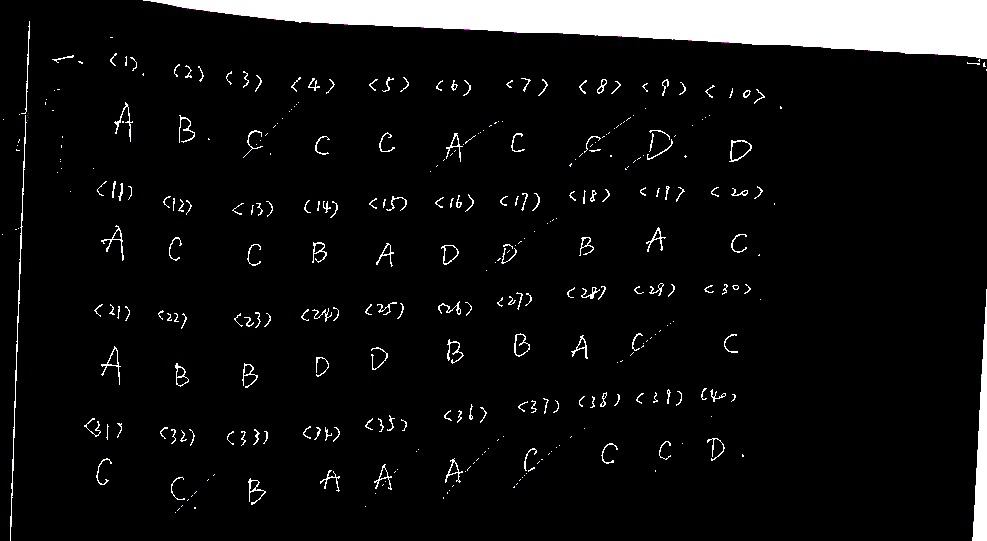 一. <1>. <2> <3> <4> <5> <6> <7> <8> <9> <10>.
A B. C. C C A C C. D. D
<11> <12> <13> <14> <15> <16> <17> <18> <19> <20>.
A C C B A D D B A C.
<21> <22> <23> <24> <25> <26> <27> <28> <29> <30>.
A B B D D B B A C C
<31> <32> <33> <34> <35> <36> <37> <38> <39> <40>
C C. B A A A C C C D.